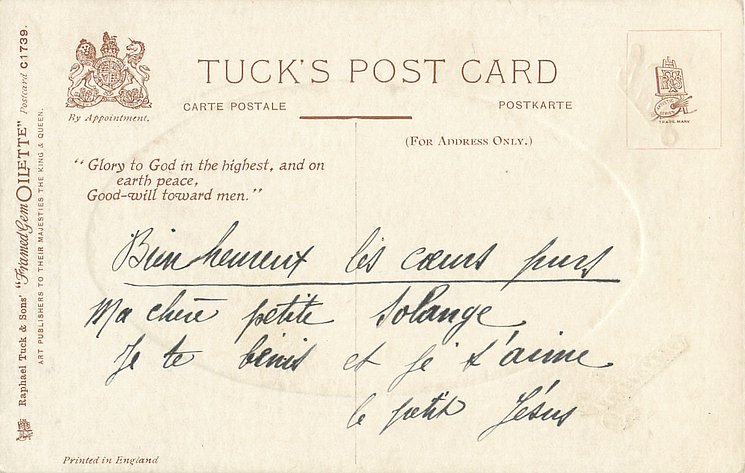 TUCK'S POST CARD
CARTE POSTALE
POSTKARTE
By Appointment.
(FOR ADDRESS ONLY.)
TRADE MARK
"Glory to God in the highest, and on
earth peace,
Good-will toward men."
Bienheureux les cœurs purs
Ma chère petite Solange
Je te bénis et je t'aime
le petit Jésus
Raphael Tuck & Sons' "Framed Gem OILETTE" Postcard C1739.
ART PUBLISHERS TO THEIR MAJESTIES THE KING & QUEEN.
Printed in England